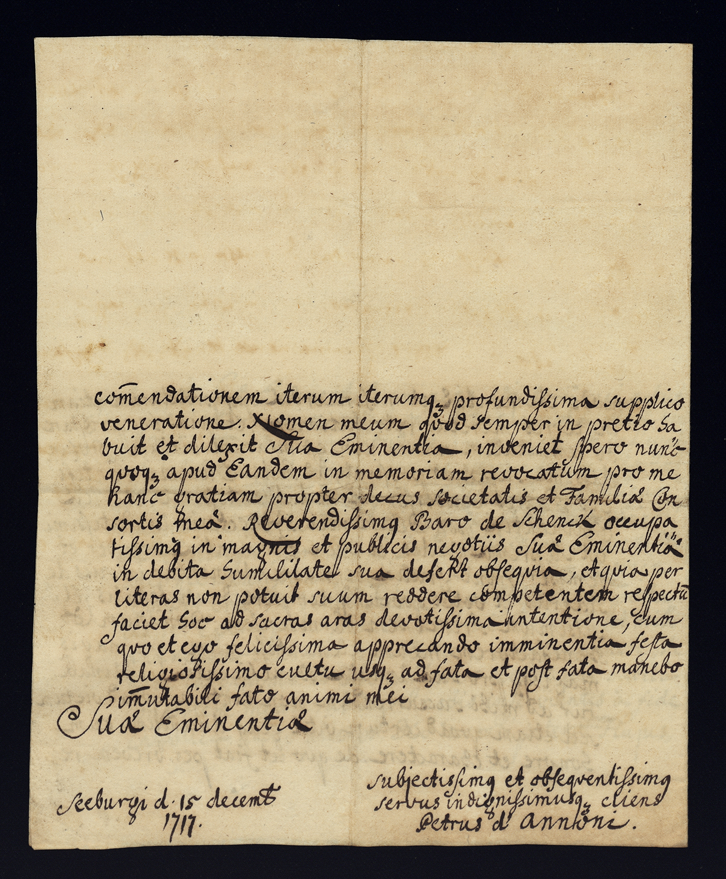 com̄endationem iterum iterumqꝫ profundissima supplico
veneratione. Nomen meum quod semper in pretio ha
buit et dilexit Sua Eminentia, inveniet spero nunc
quoqꝫ apud Eandem in memoriam revocatum pro me
hanc gratiam propter decus societatis et Familiæ Con
sortis meæ. Reverendissimꝯ Baro de Schenck occupa
tissimꝯ in magnis et publicis negotiis Suæ Eminentiæ
in debita humilitate sua defert obsequia, et quia per
literas non potuit suum reddere competentem respectū
faciet hoc ad sacras aras devotissima intentione, cum
quo et ego felicissima apprecando imminentia festa
religiosissimo cultu usqꝫ ad fata et post fata manebo
im̄utabili fato animi mei
Suæ Eminentiæ
subjectissimꝯ et obsequentissimꝯ
servus indignissimusqꝫ cliens
Petrus d' Annoni.
Seeburgi d. 15 decemb
1717.